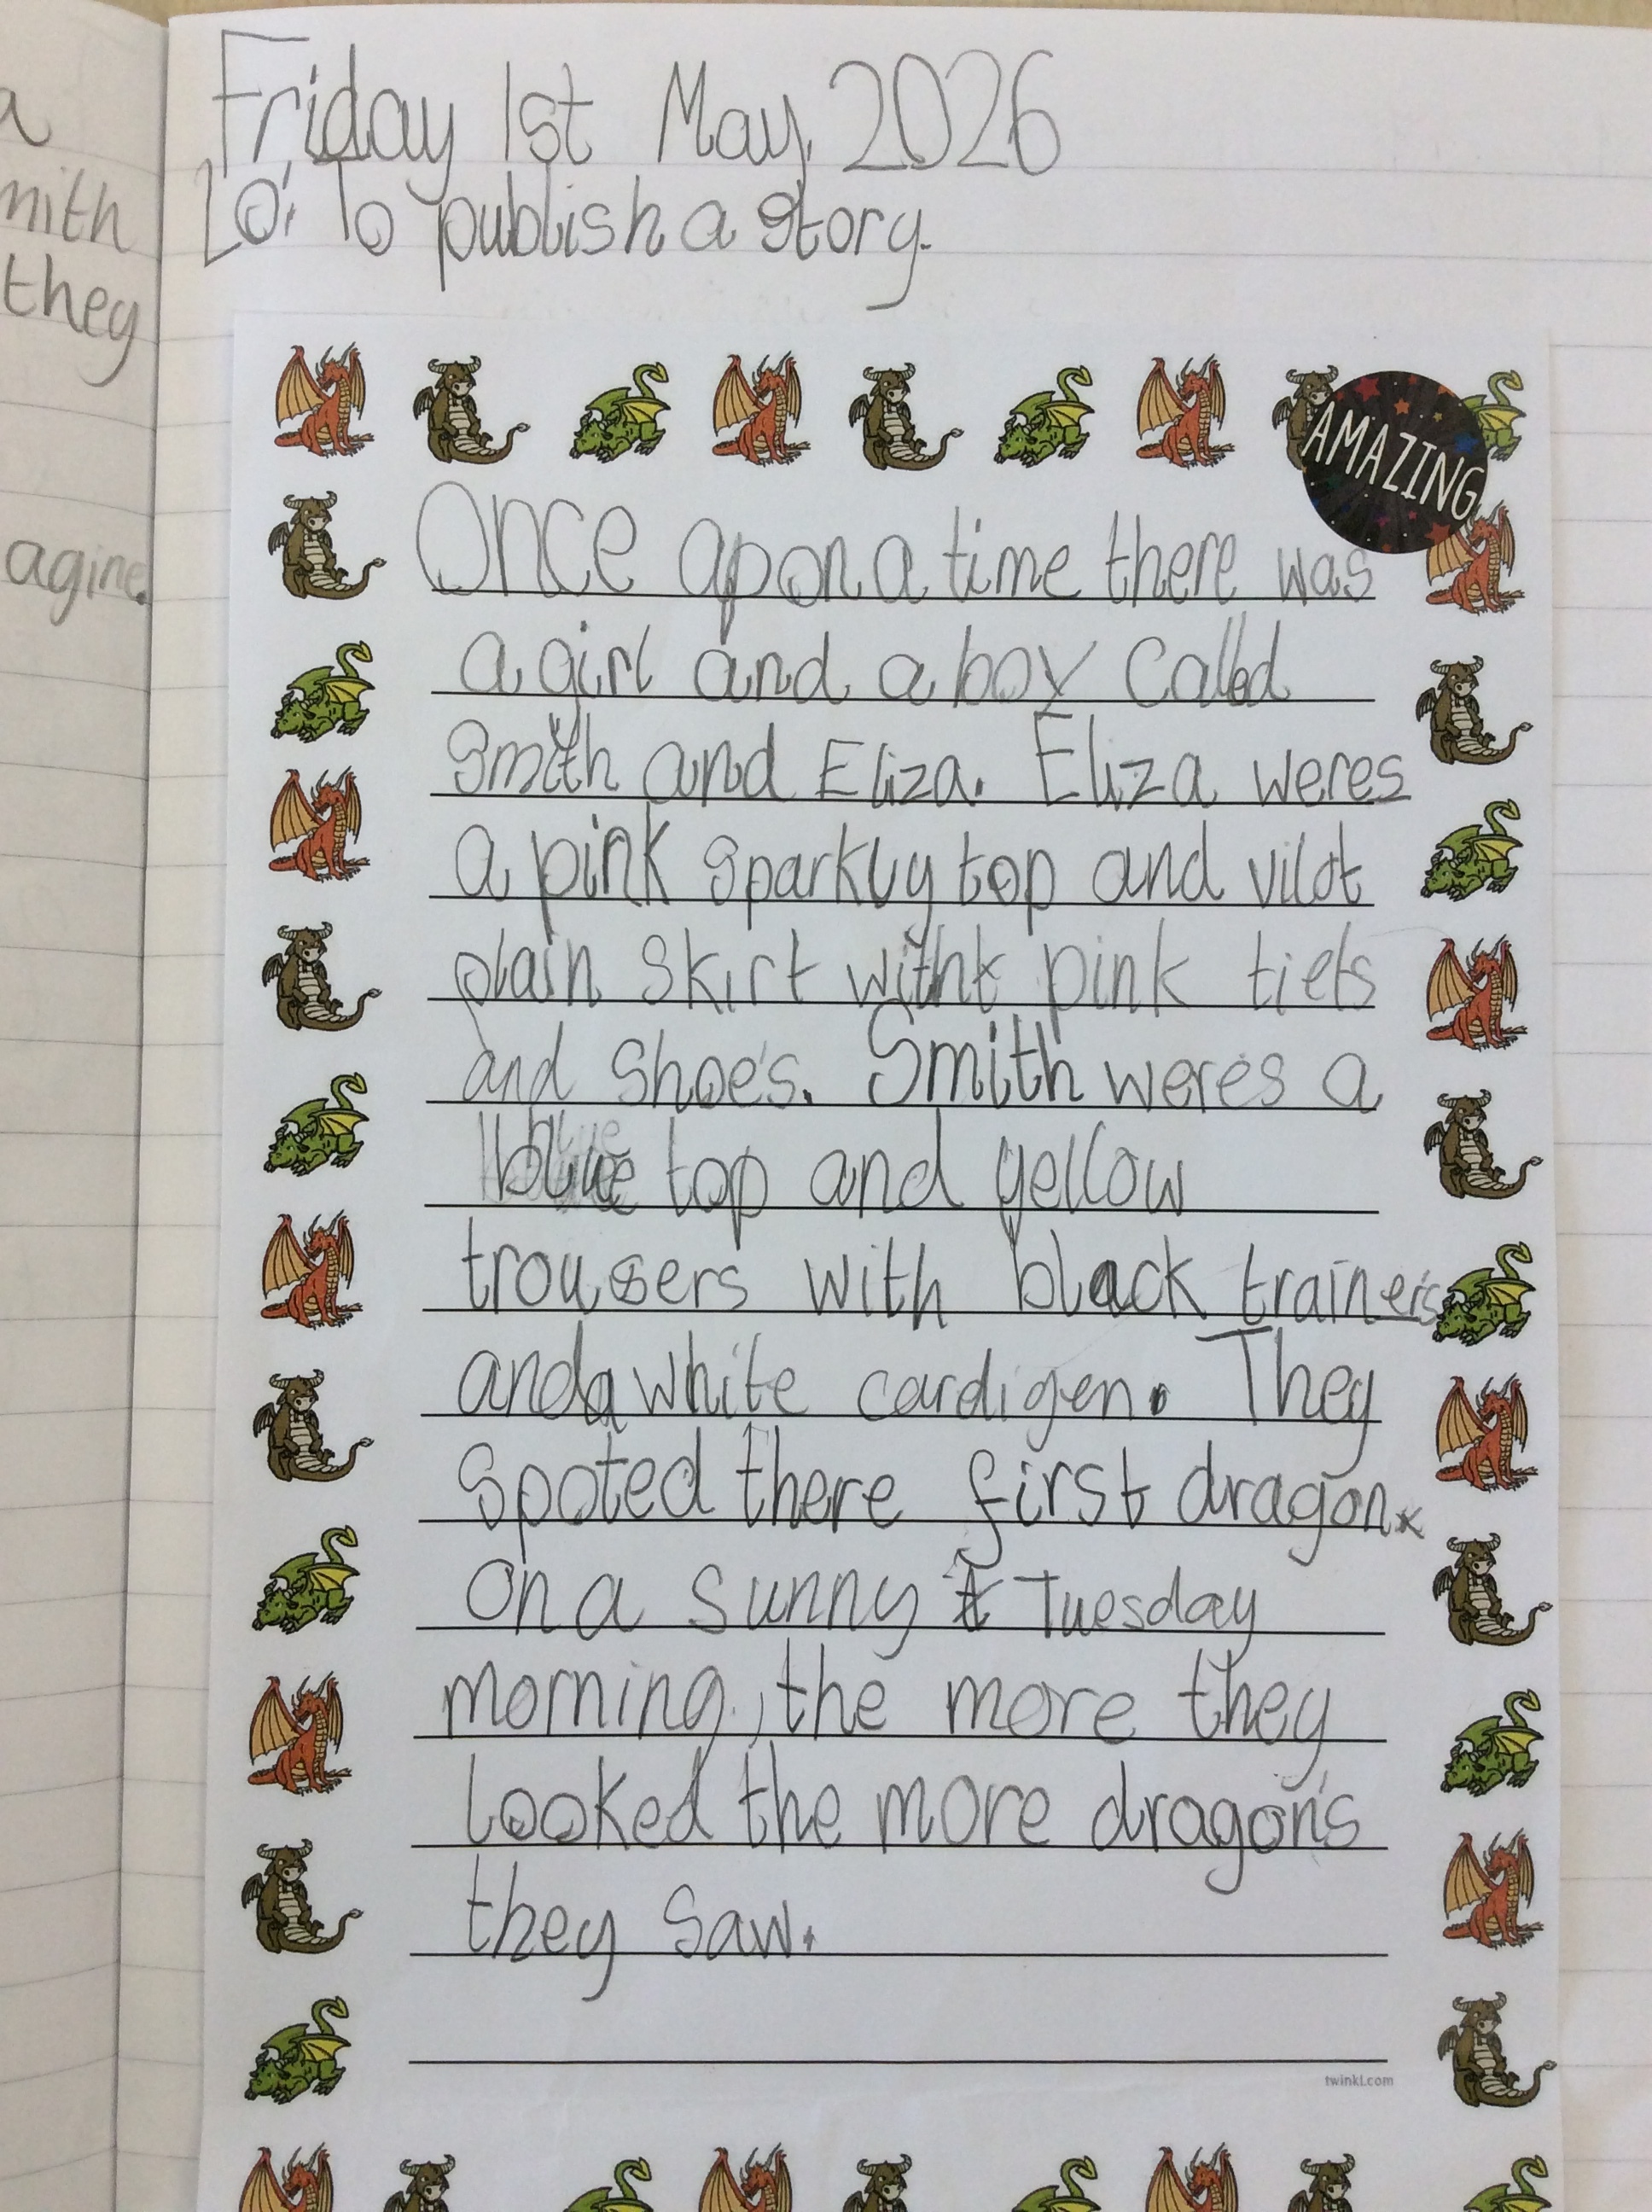 a
mith
they
agine.
Friday 1st May 2026
LO: To publish a story.
AMAZING
Once apon a time there was
a girl and a boy Called
Smith and Eliza. Eliza weres
a pink sparkly top and vilot
plain skirt witht pink tiets
and shoe's. Smith weres a
blue top and yellow
trousers with black trainer's
and a white cardigen. They
spoted there first dragon.
on a sunny t Tuesday
morning, the more they
looked the more dragon's
they saw.
twinkl.com